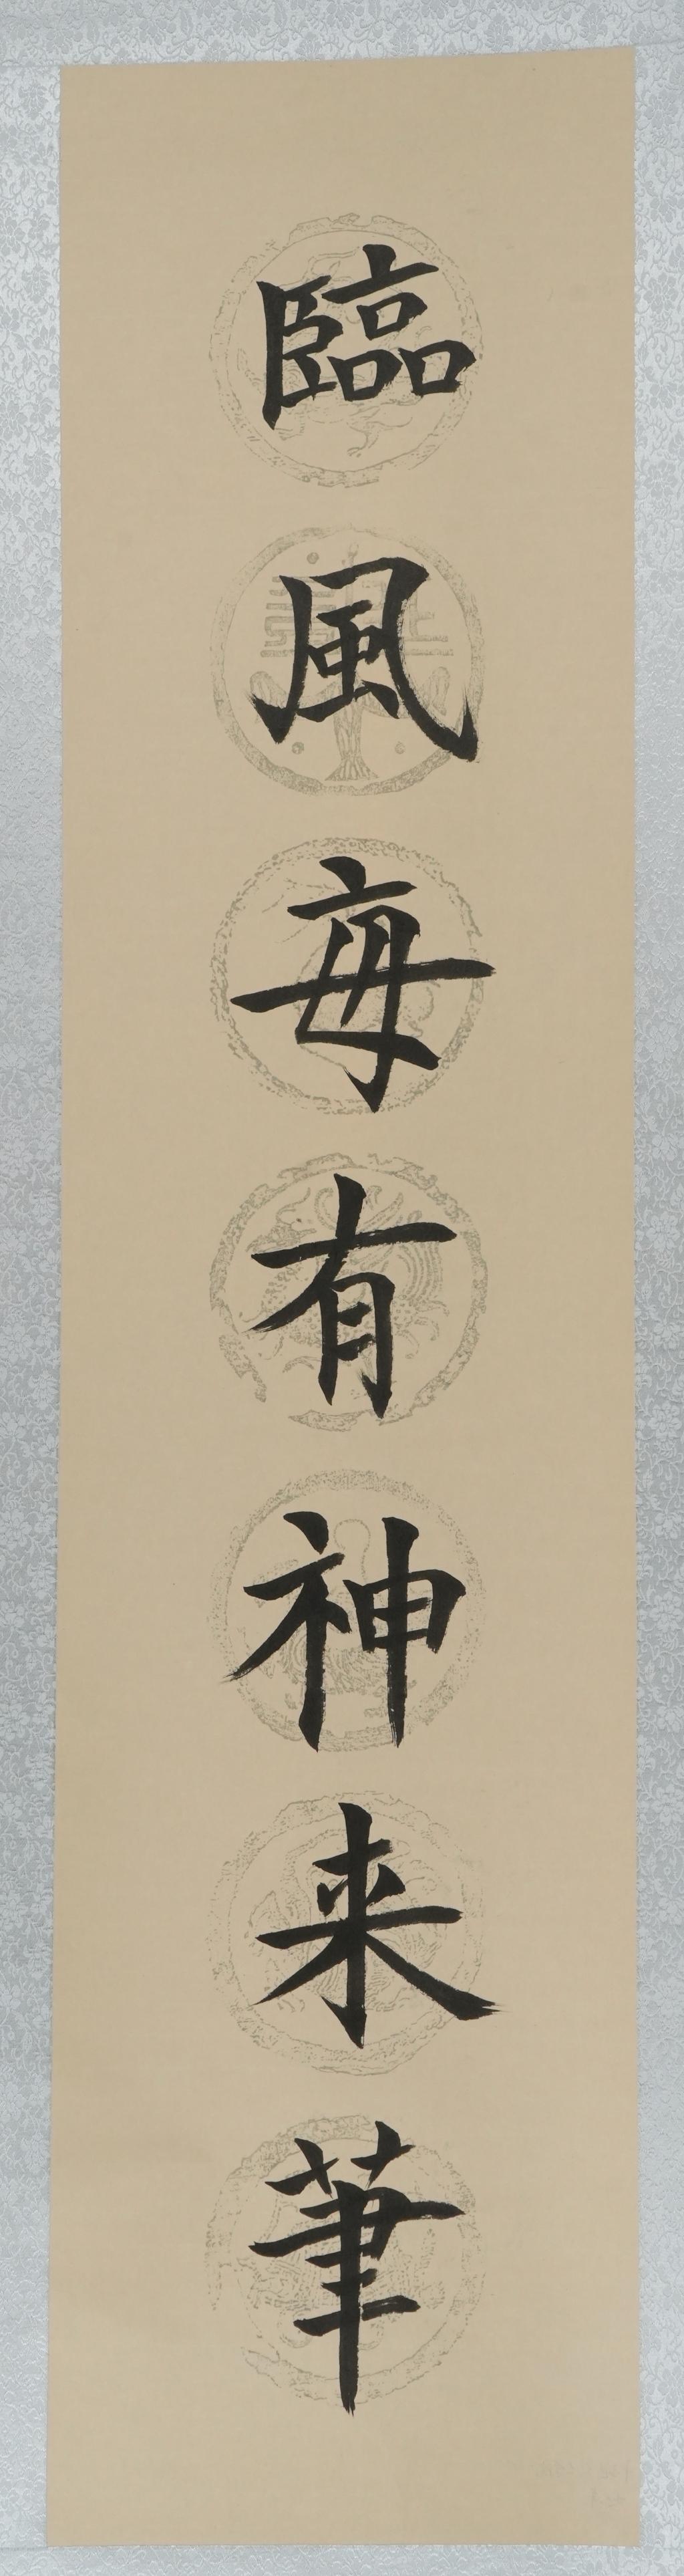 臨風每有神来筆